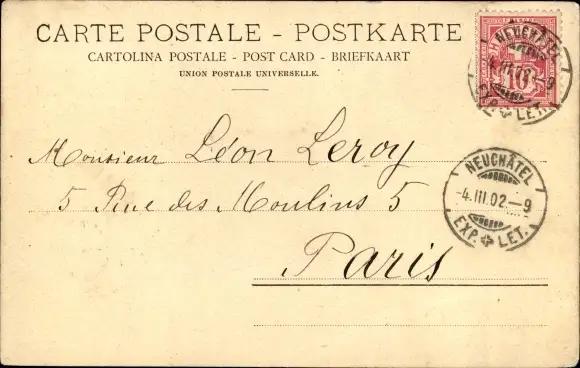 CARTE POSTALE - POSTKARTE
CARTOLINA POSTALE - POST CARD - BRIEFKAART
UNION POSTALE UNIVERSELLE.
NEUCHÂTEL
EXP. LET.
Monsieur Léon Leroy
5 Rue des Moulins 5
Paris
NEUCHÂTEL
-4.III.02-9
EXP. LET.